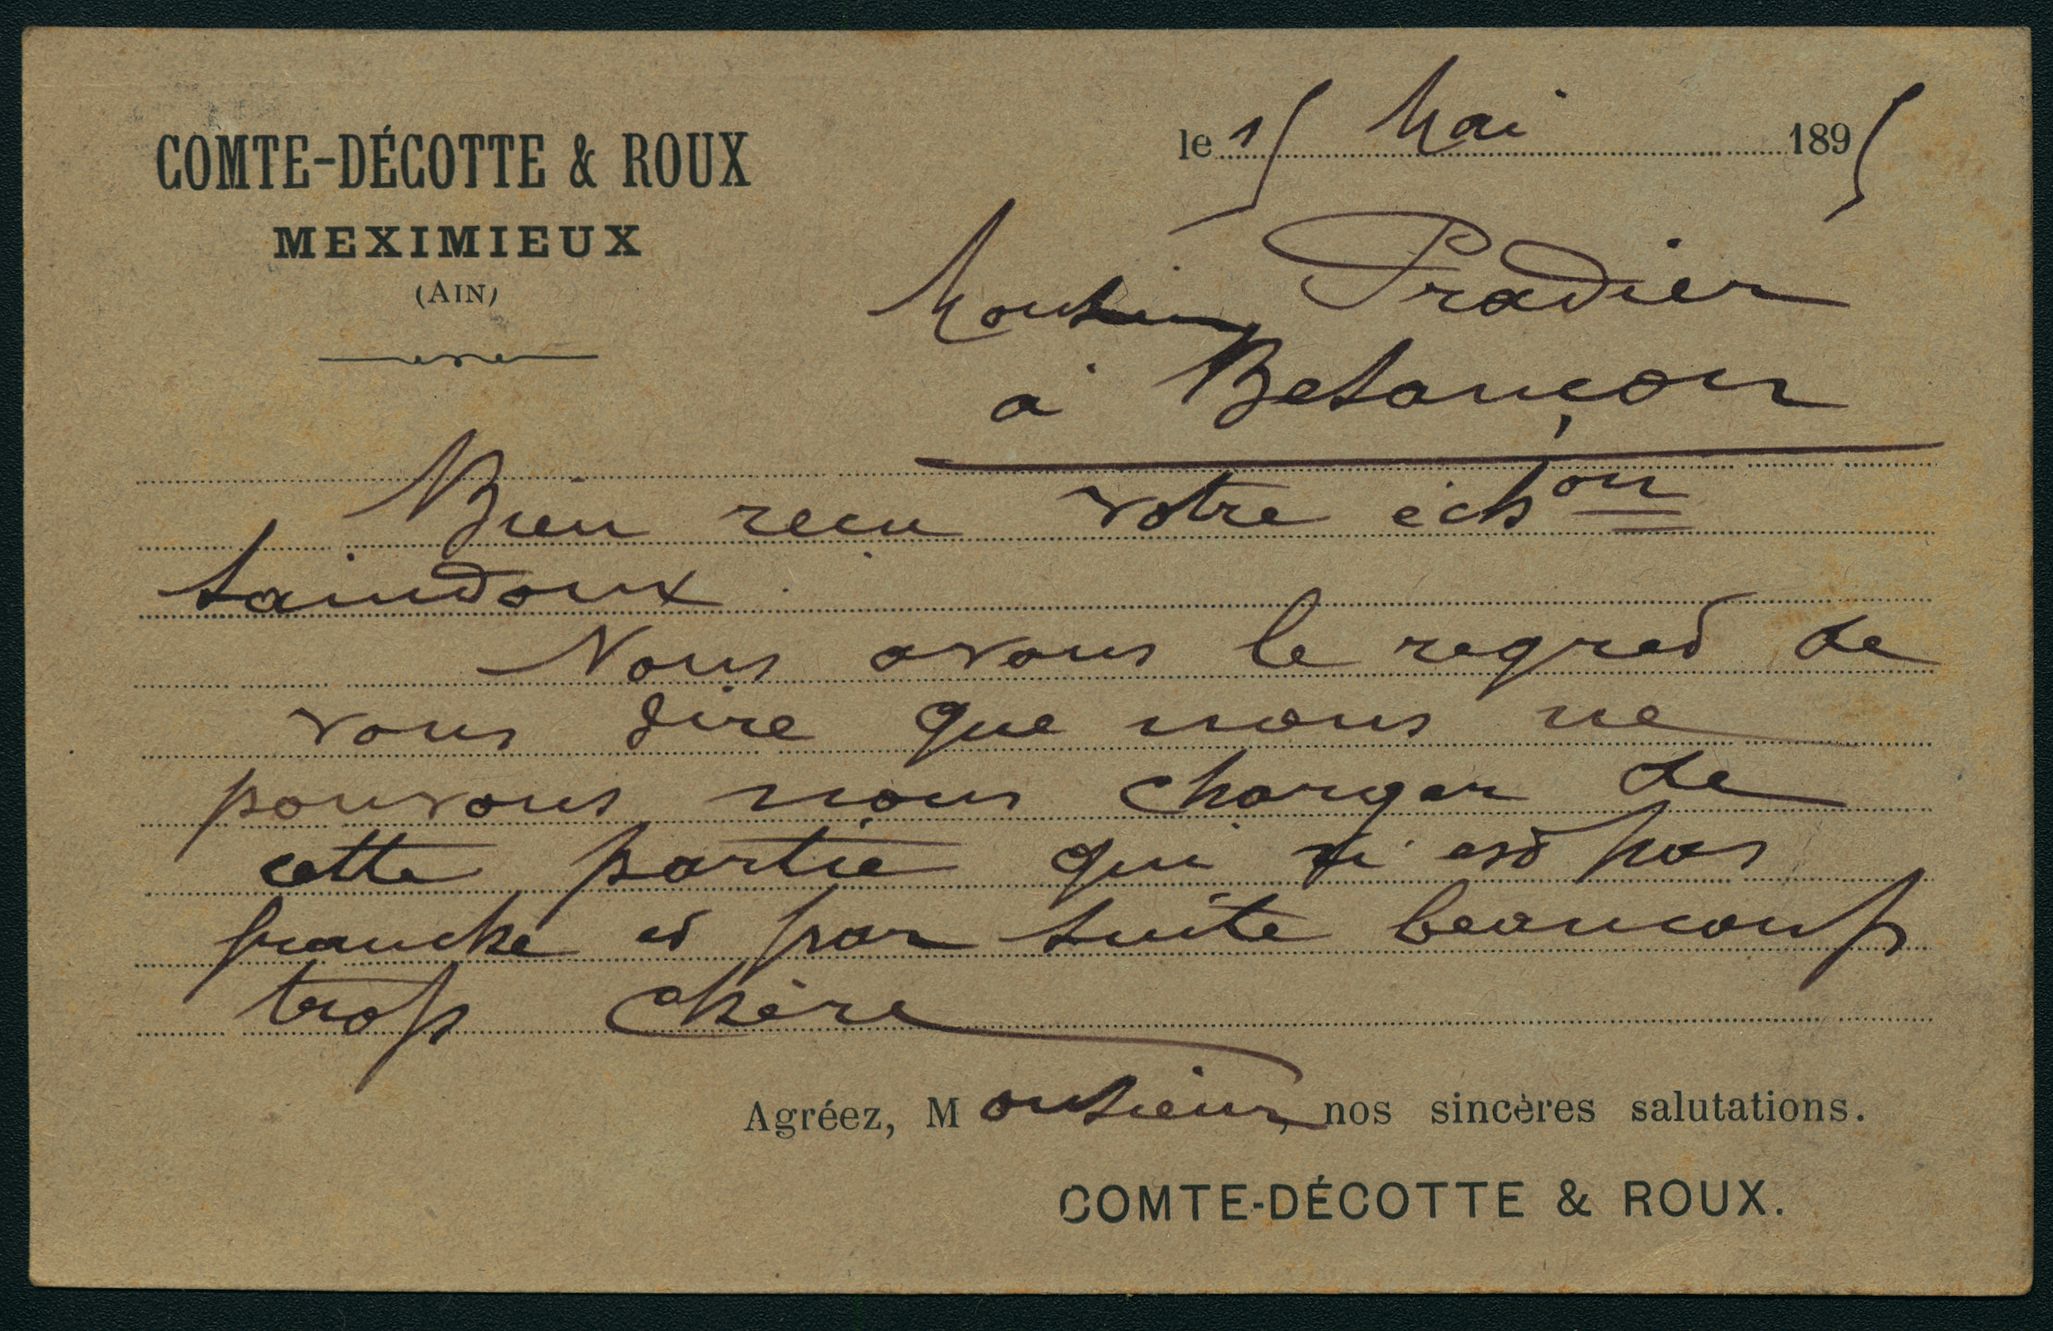 COMTE-DÉCOTTE & ROUX
MEXIMIEUX
(AIN)
le 15 Mai 1895
Monsieur Pradier
à Besançon
Bien recu votre échon
saindoux.
Nous avons le regret de
vous dire que nous ne
pouvons nous charger de
cette partie qui n'est pas
franche et par suite beaucoup
trop chère
Agréez, Monsieur, nos sincères salutations.
COMTE-DÉCOTTE & ROUX.